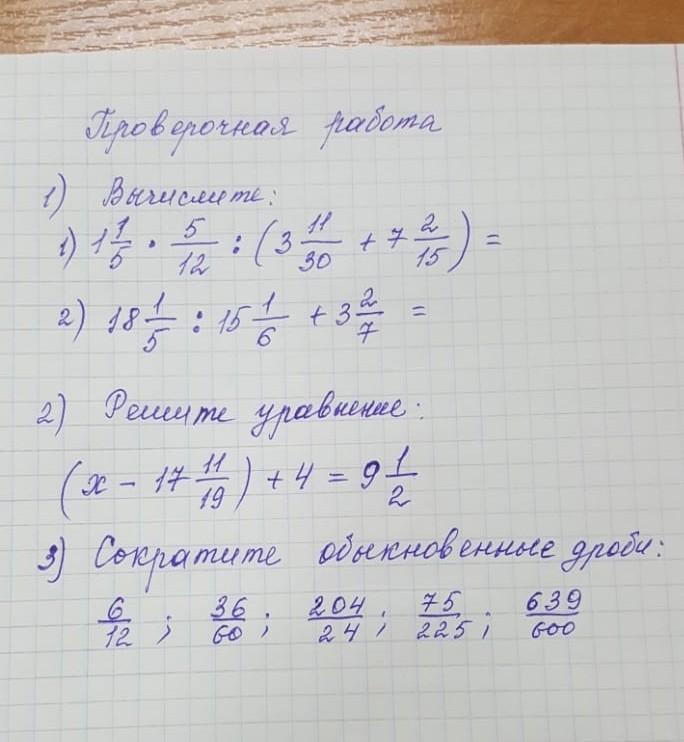 Проверочная работа
1) Вычислите:
1) 1 1/5 · 5/12 : (3 11/30 + 7 2/15) =
2) 18 1/5 : 15 1/6 + 3 2/7 =
2) Решите уравнение:
(х - 17 11/19) + 4 = 9 1/2
3) Сократите обыкновенные дроби:
6/12 ; 36/60 ; 204/24 ; 75/225 ; 639/600